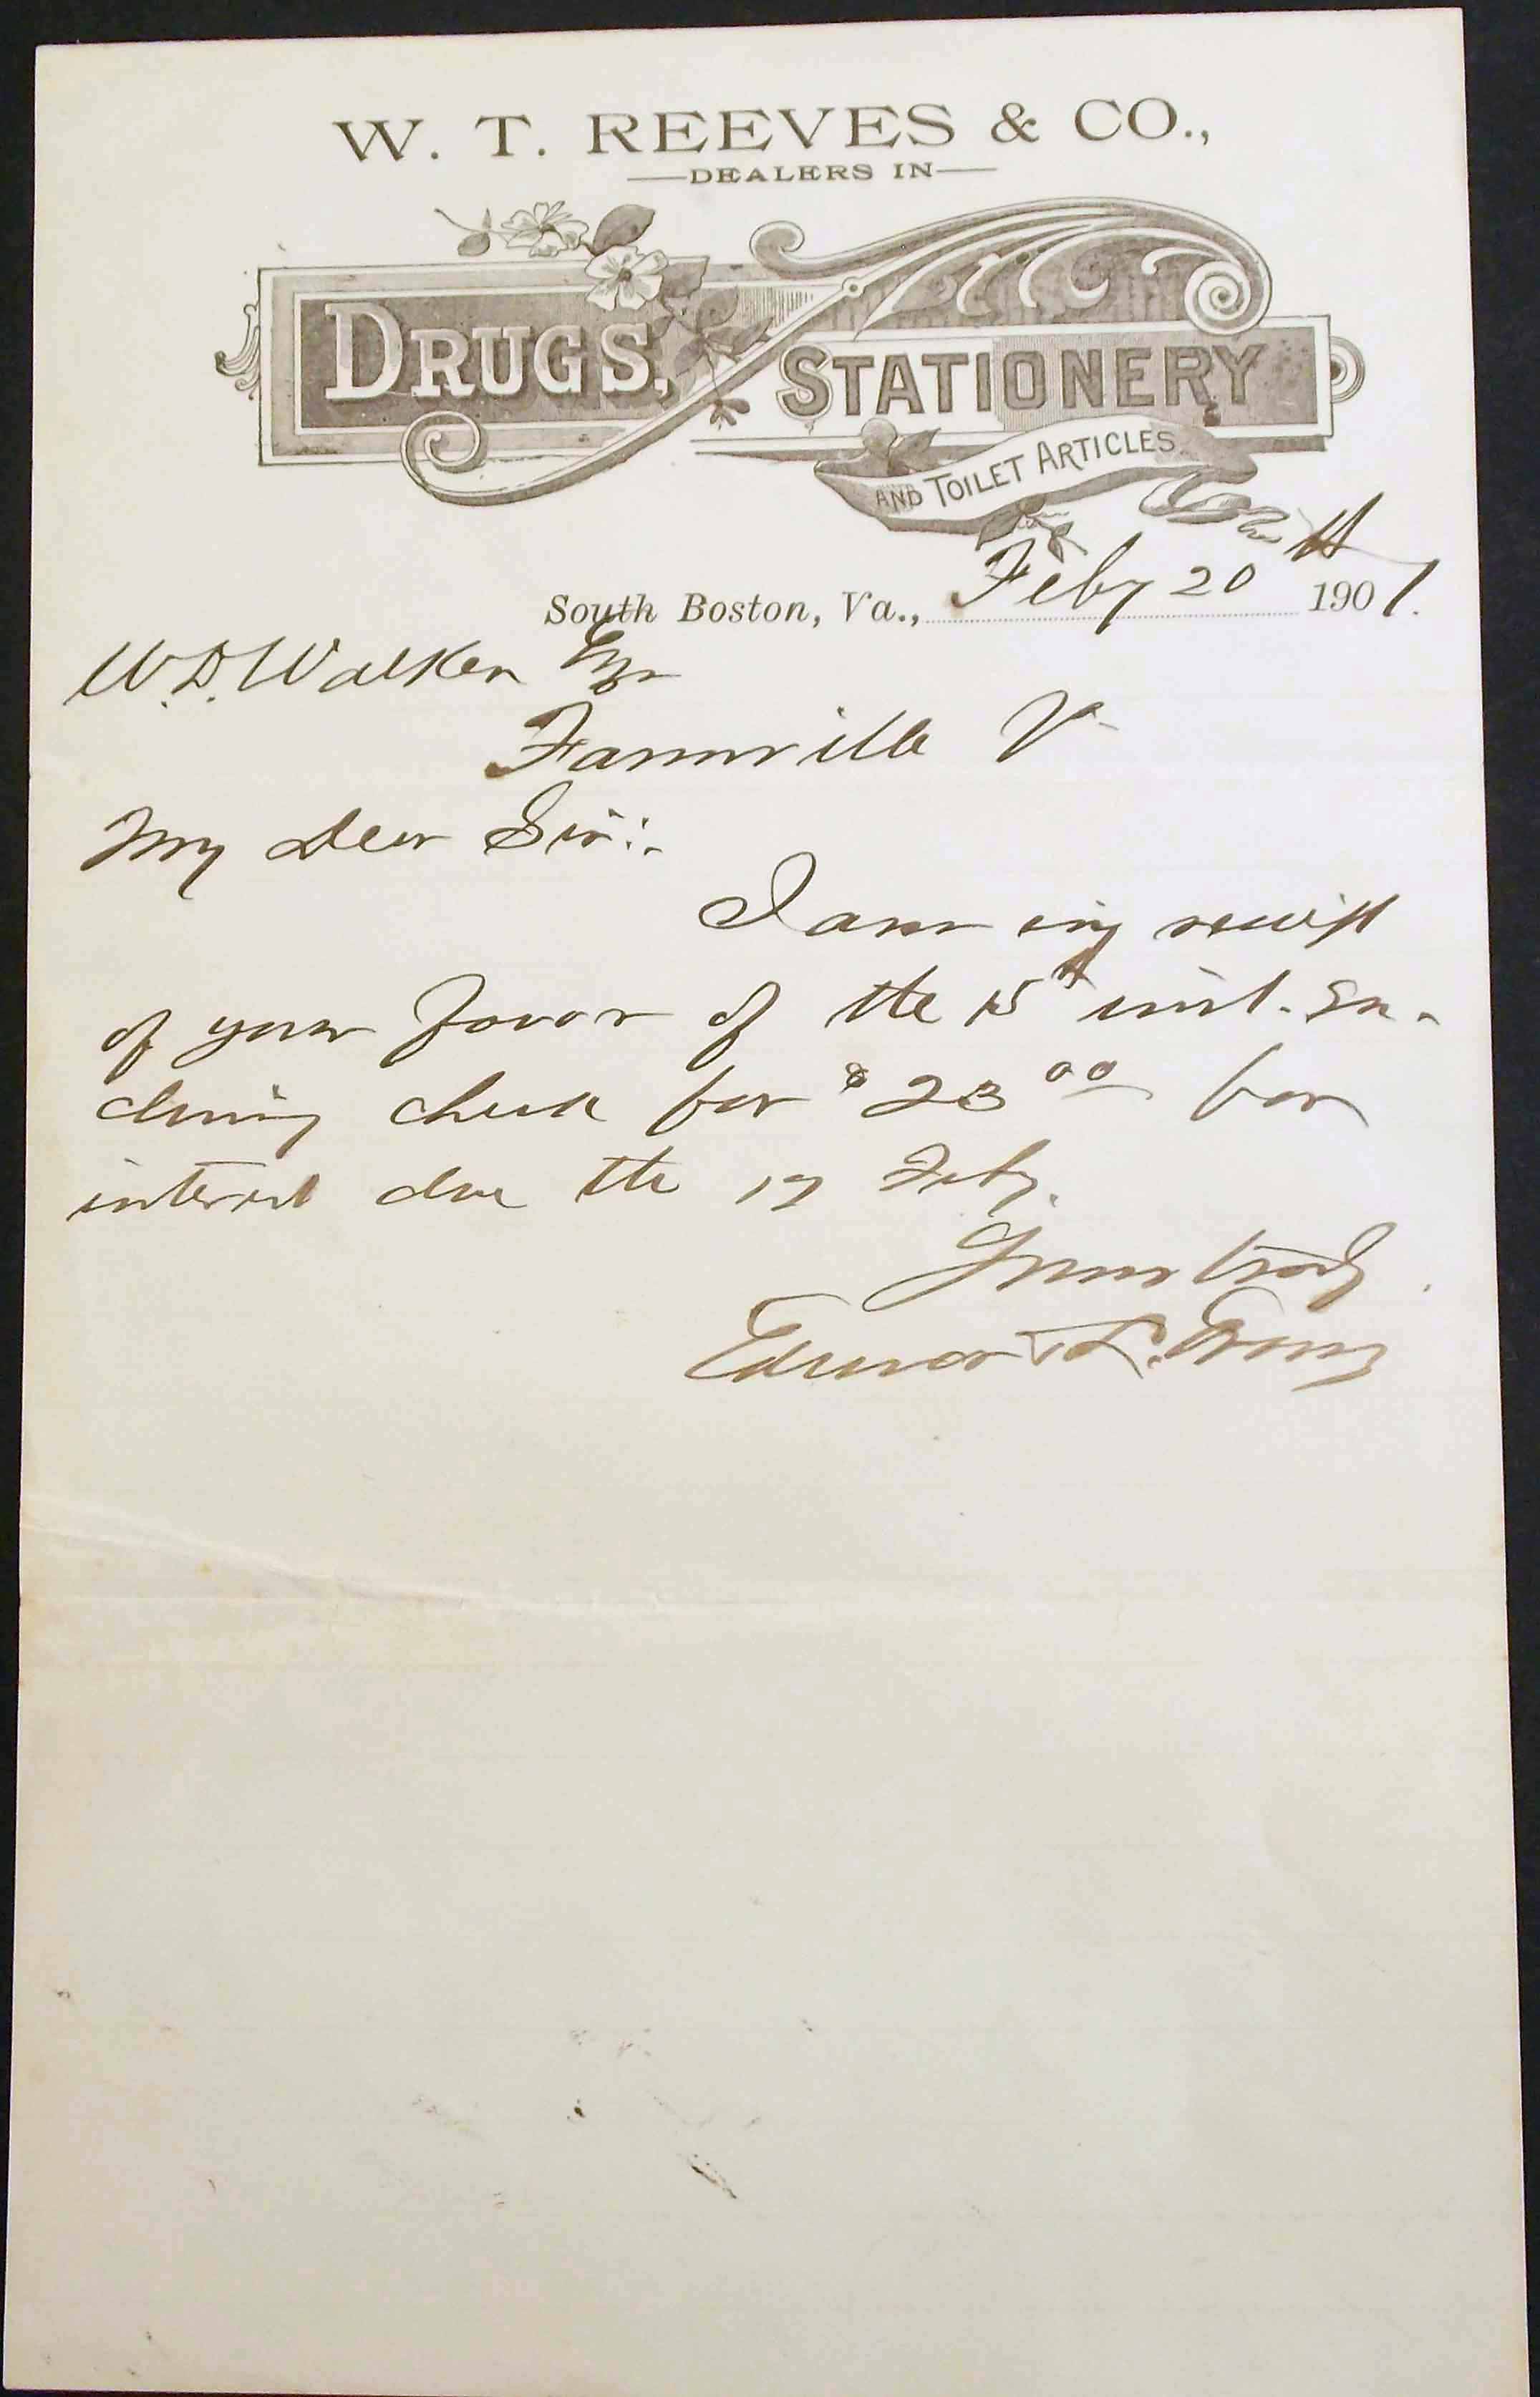 W. T. REEVES & CO.,
DEALERS IN
DRUGS,
STATIONERY
AND TOILET ARTICLES.
South Boston, Va., Feby 20th 1901.
W. D. Walker Esqr
Farmville Va
My Dear Sir:-
I am in receipt
of your favor of the 15th inst. En-
closing check for $23 00 for
interest due the 17 Feby.
Yours truly
Edward L.